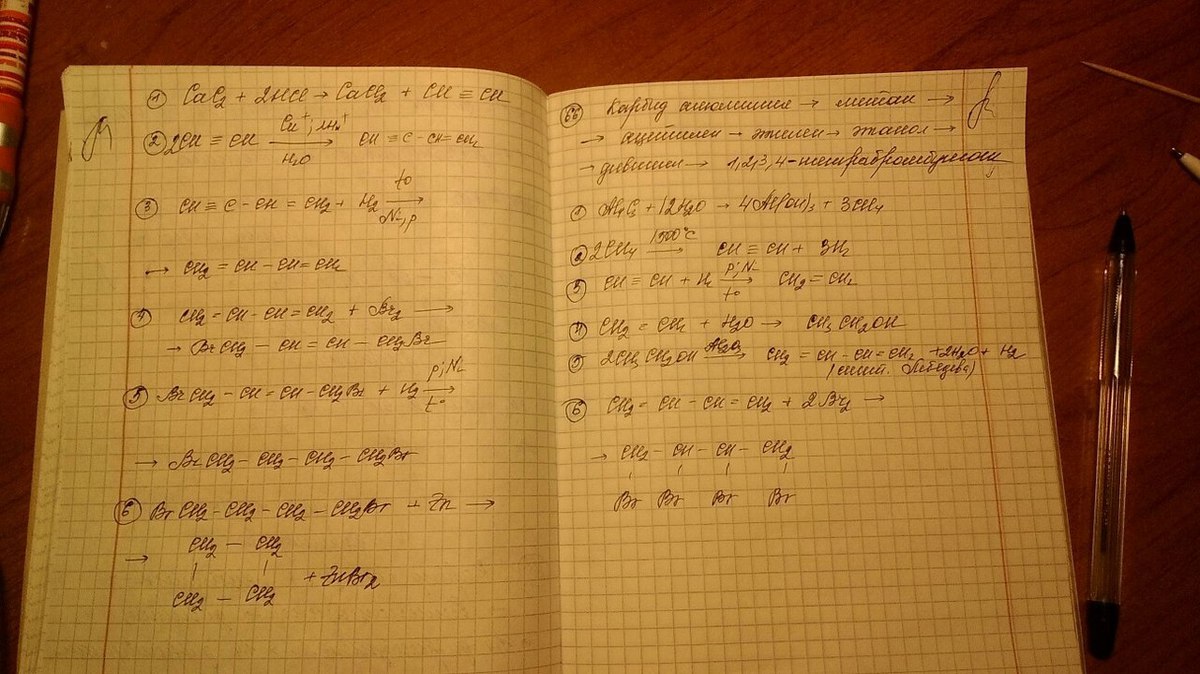 ① CaC₂ + 2HCl → CaCl₂ + CH ≡ CH
② 2CH ≡ CH Cu⁺; NH₄⁺ → H₂O CH ≡ C - CH = CH₂
③ CH ≡ C - CH = CH₂ + H₂ t° → Ni, p
→ CH₂ = CH - CH = CH₂
④ CH₂ = CH - CH = CH₂ + Br₂ →
→ BrCH₂ - CH = CH - CH₂Br
⑤ BrCH₂ - CH = CH - CH₂Br + H₂ p; Ni → t°
→ BrCH₂ - CH₂ - CH₂ - CH₂Br
⑥ BrCH₂ - CH₂ - CH₂ - CH₂Br + Zn →
→ CH₂ - CH₂
CH₂ - CH₂ + ZnBr₂
66 Карбид алюминия → метан →
→ ацетилен → этилен → этанол →
→ дивинил → 1,2,3,4-тетрабромбутан
① Al₄C₃ + 12H₂O → 4Al(OH)₃ + 3CH₄
② 2CH₄ 1500°C → CH ≡ CH + 3H₂
③ CH ≡ CH + H₂ p; Ni → t° CH₂ = CH₂
④ CH₂ = CH₂ + H₂O → CH₃CH₂OH
⑤ 2CH₃CH₂OH Al₂O₃ → CH₂ = CH - CH = CH₂ + 2H₂O + H₂
(синт. Лебедева)
⑥ CH₂ = CH - CH = CH₂ + 2Br₂ →
→ CH₂ - CH - CH - CH₂
Br Br Br Br